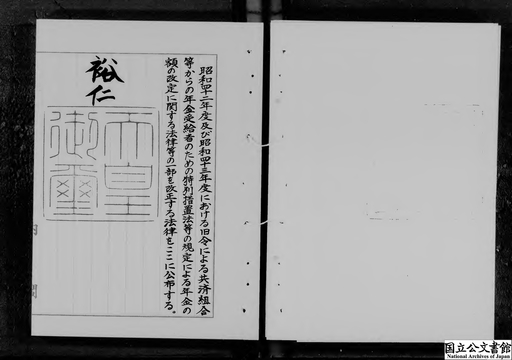 昭和四十二年度及び昭和四十三年度における旧令による共済組合
等からの年金受給者のための特別措置法等の規定による年金の
額の改定に関する法律等の一部を改正する法律をここに公布する。
裕仁
天皇
御璽
国立公文書館
National Archives of Japan